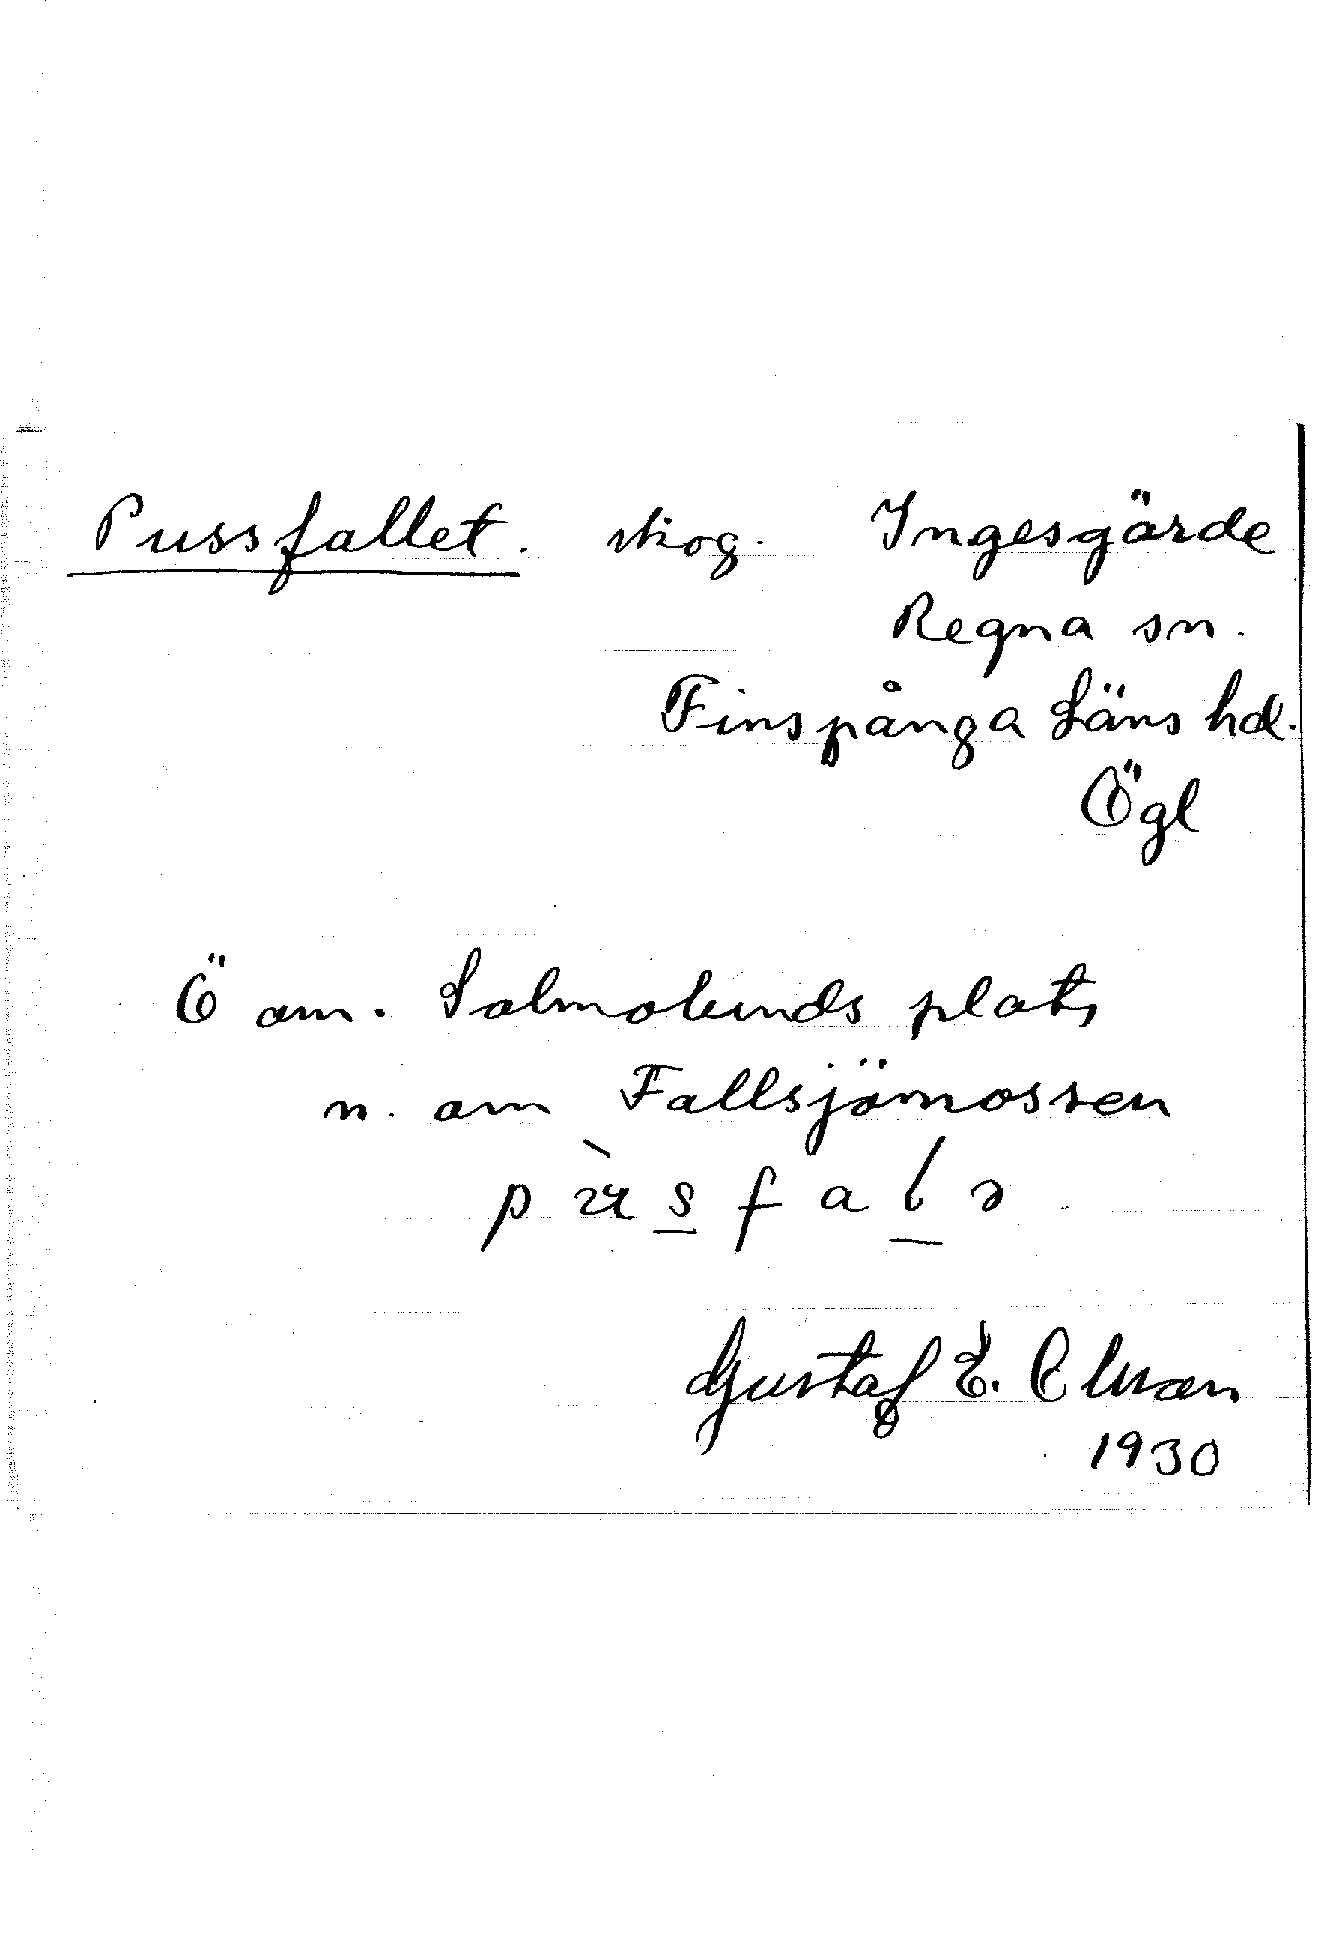 Pussfallet. skog. Ingesgärde
Regna sn.
Finspånga Läns hd.
Ögl
Ö om. Salmolunds plats
n. om Fallsjömossen
pùsfalə
Gustaf E.
1930